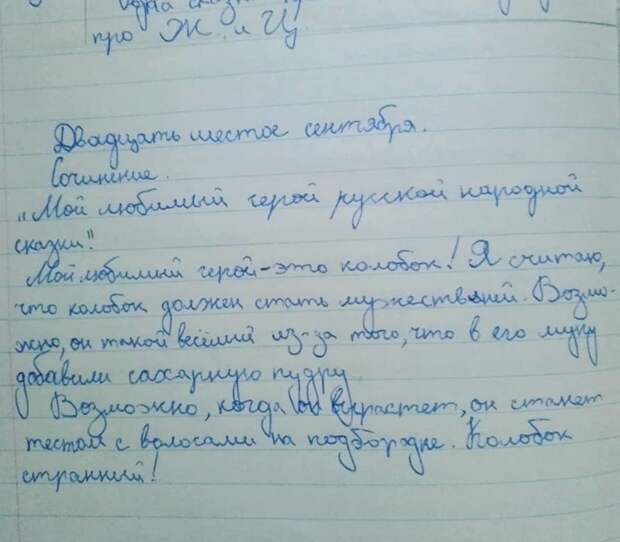 одна сказка
про Ж и Ц
Двадцать шестое сентября.
Сочинение.
„Мой любимый герой русской народной
сказки."
Мой любимий герой-это колобок! Я считаю,
что колобок должен стать мужествнней. Возмо-
жно, он такой весёлий из-за того, что в его муку
добавили сахарную пудру.
Возможно, когда он вырастет, он станет
тестом с волосами на подбородке. Колобок
странний!